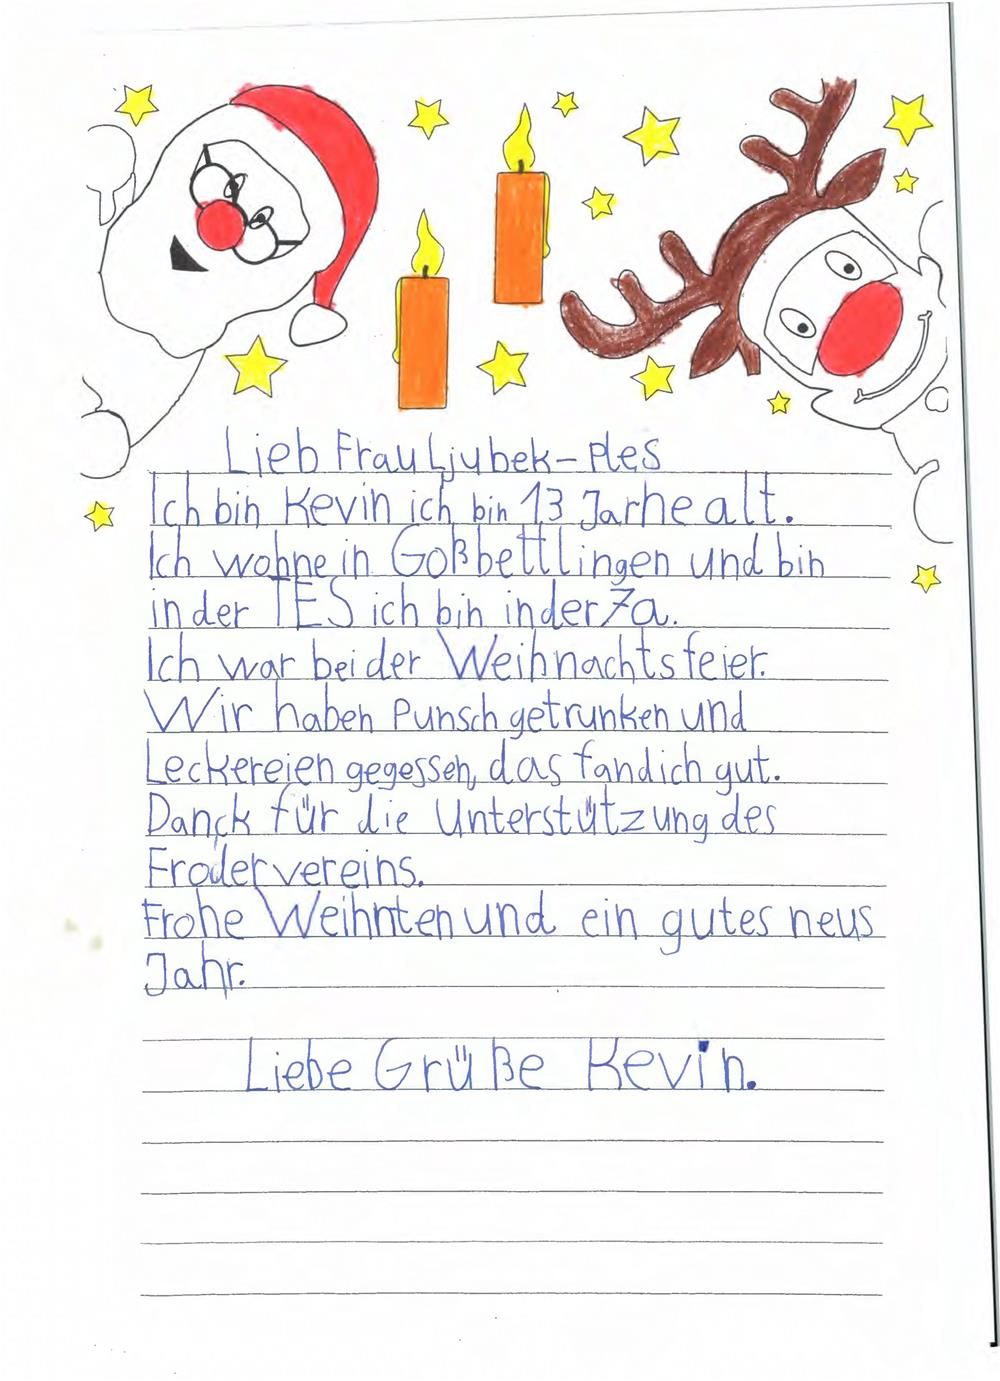 Lieb Frau Ljubek-Ples
Ich bin Kevin ich bin 13 Jarhe alt.
Ich wohne in Goßbettlingen und bin
in der TES ich bin in der 7a.
Ich war bei der Weihnachtsfeier.
Wir haben Punsch getrunken und
Leckereien gegessen, das fand ich gut.
Danck für die Unterstützung des
Frodervereins.
Frohe Weihnten und ein gutes neus
Jahr.
Liebe Grüße Kevin.